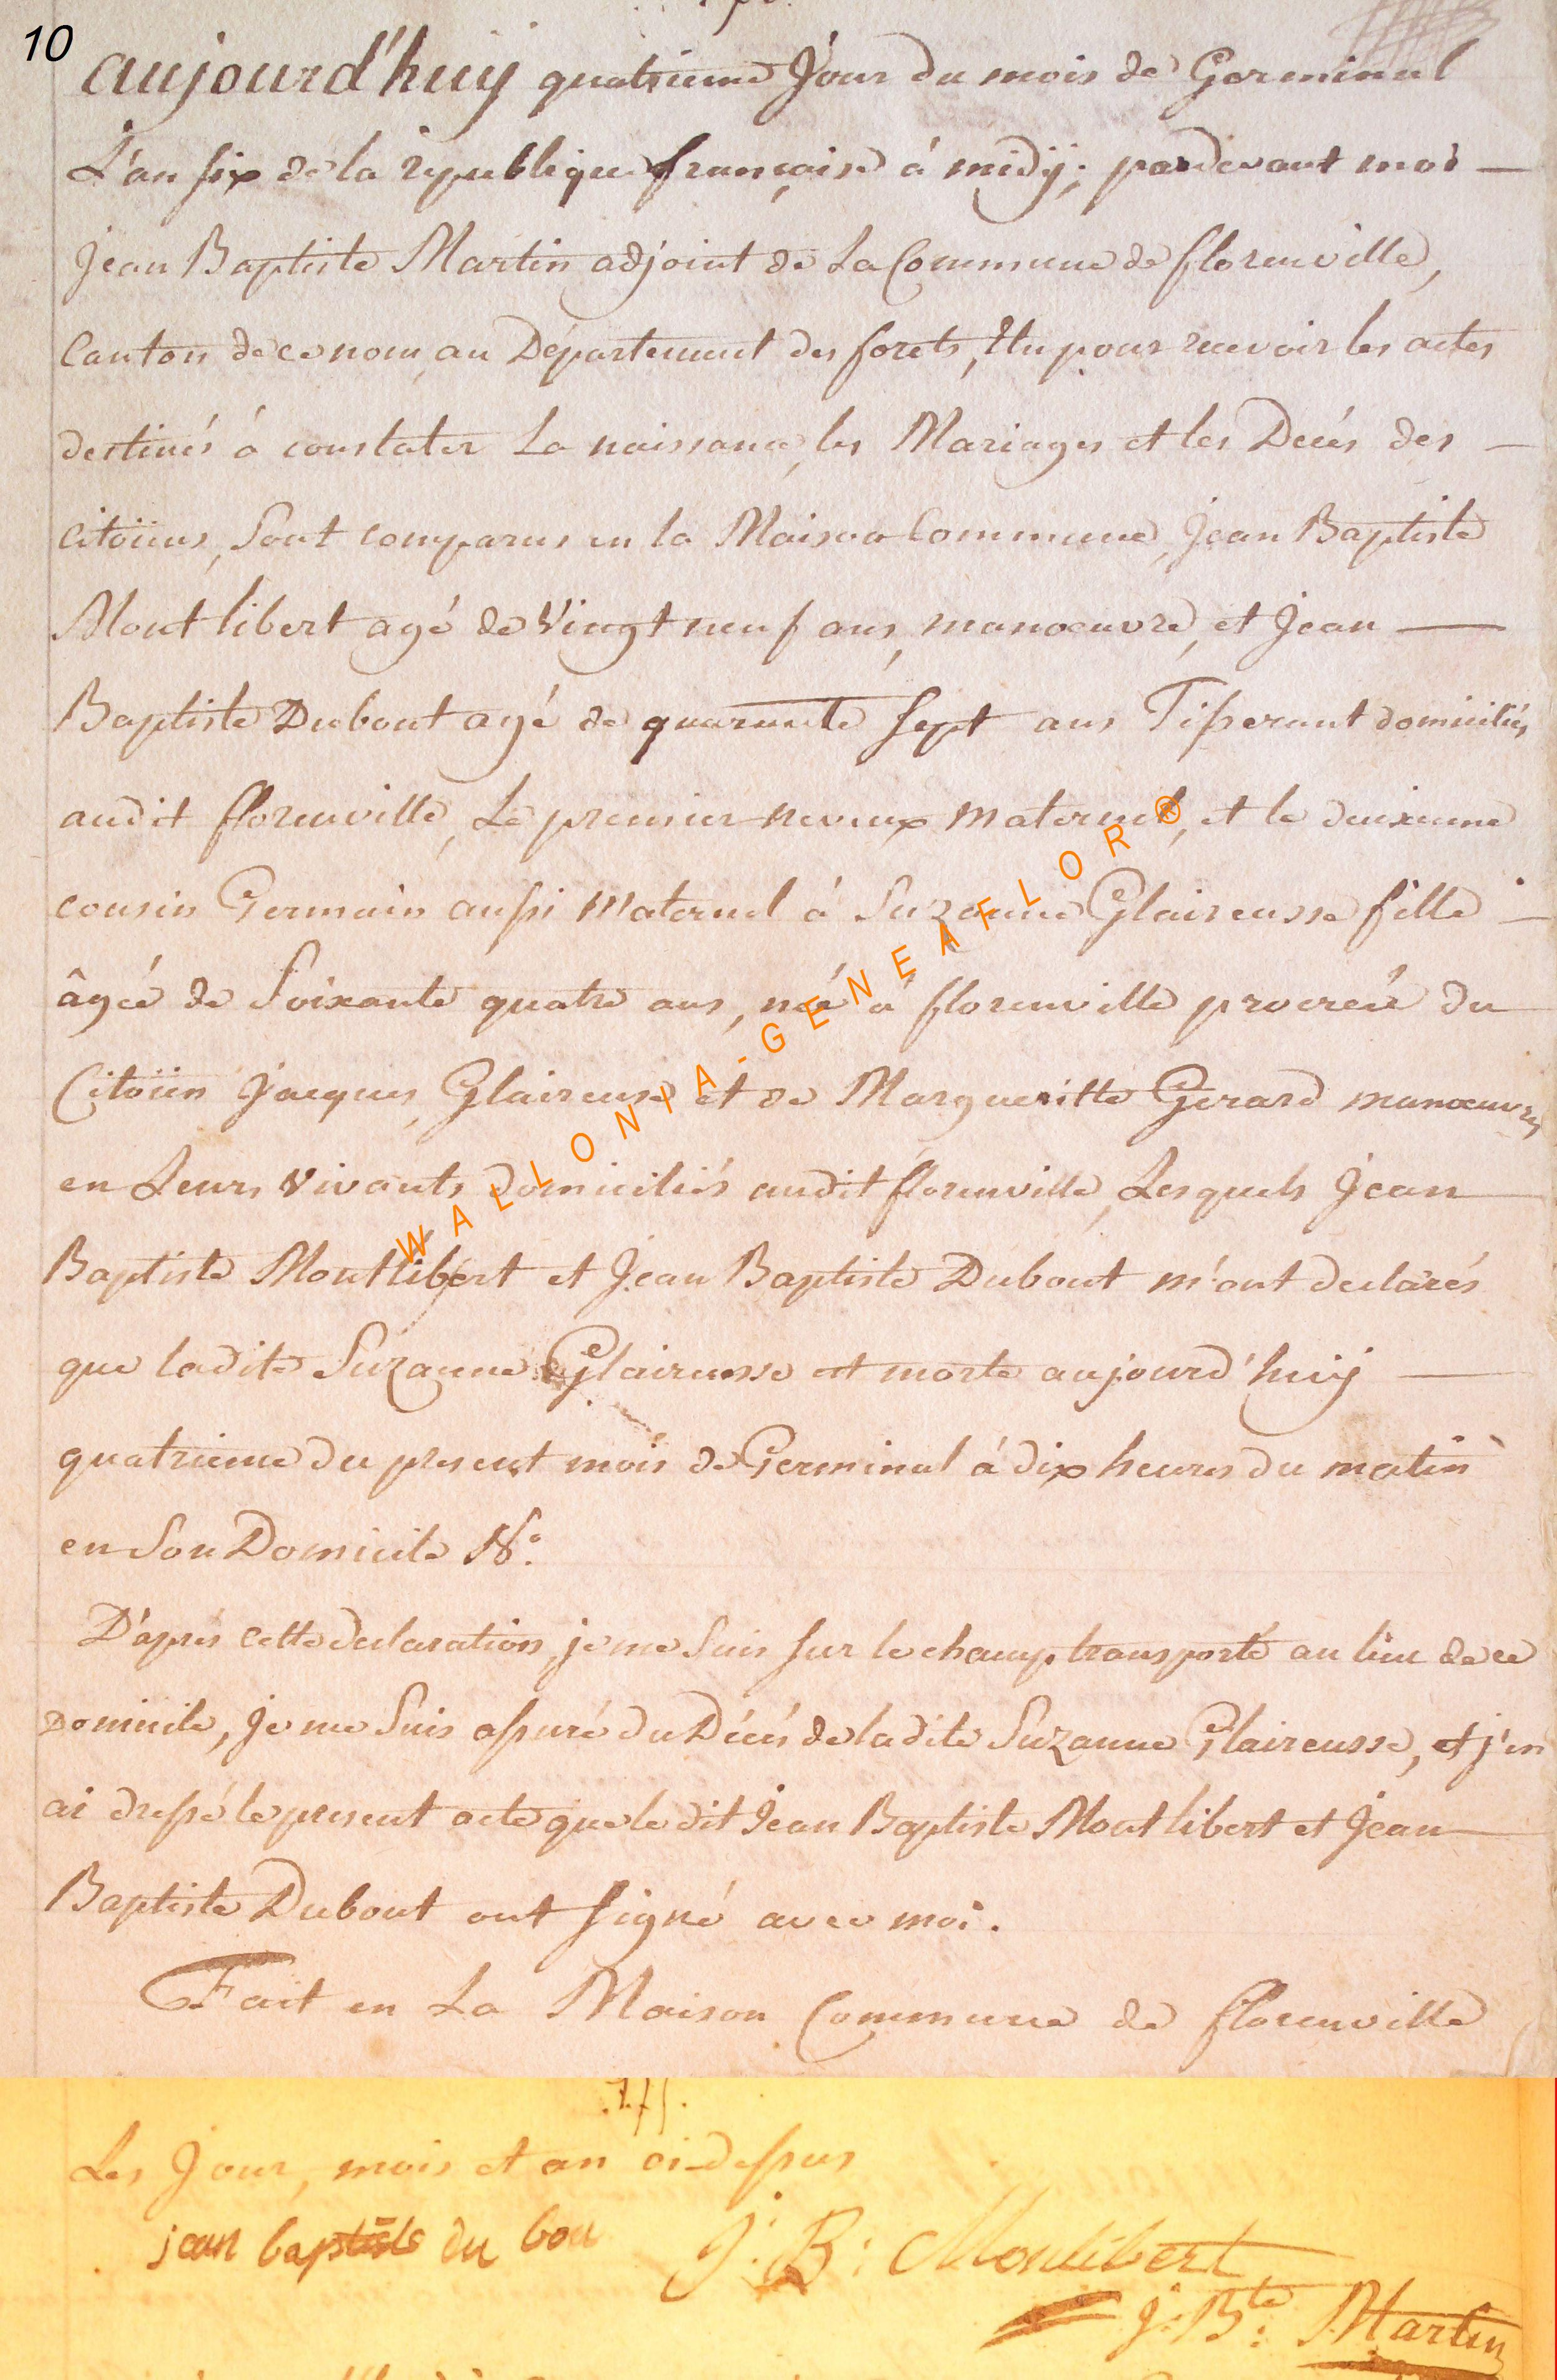 10
aujourd'huij quatrieme Jour du mois de Germinal
L'an six de la republique française à midÿ; pardevant moi —
Jean Baptiste Martin adjoint de La Commune de florenville,
Canton de ce nom, au Département des forets, Elu pour recevoir les actes
destinés à constater La naissance, les Mariages et les Decés des —
citoïens, Sont comparus en la Maison Commune, Jean Baptiste
Montlibert agé de Vingt neuf ans, manoeuvre, et Jean —
Baptiste Dubout agé de quarante sept ans Tisserant domiciliés
audit florenville, Le premier neveux maternel, et le deuixieme
cousin Germain aussi Maternel à Suzanne Glaireusse fille —
âgée de Soixante quatre ans, née à florenville procreée du
Citoïen Jacques Glaireuse et de Margueritte Gerard manœuvres
en Leurs vivants domiciliés audit florenville, Lesquels Jean
Baptiste Montlibert et Jean Baptiste Dubout m'ont declarés
que ladite Suzanne Glaireusse est morte aujourd'huij —
quatrieme du present mois de Germinal à dix heures du matin
en Son Domicile N°.
D'aprés cette declaration, je me Suis sur le champ transporté au lieu de ce
Domicile, Je me Suis assuré du Décés de ladite Suzanne Glaireusse, et j'en
ai dressé le present acte que le dit Jean Baptiste Montlibert et Jean
Baptiste Dubout ont signé avec moi.
Fait en La Maison Commune de florenville
Les Jour, mois et an ci-dessus
jean baptiste du bou J: B: Montlibert
J: Bte: Martin
WALLONIA-GENEAFLOR®